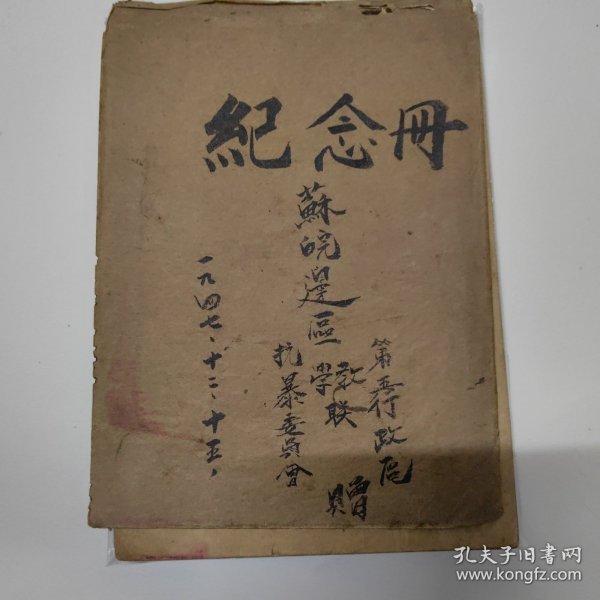 紀念冊
蘇皖邊區
第五行政區
教联
学
抗暴委員會
贈
一九四七、十二、十五、
孔夫子旧書网
www.kongfz.com